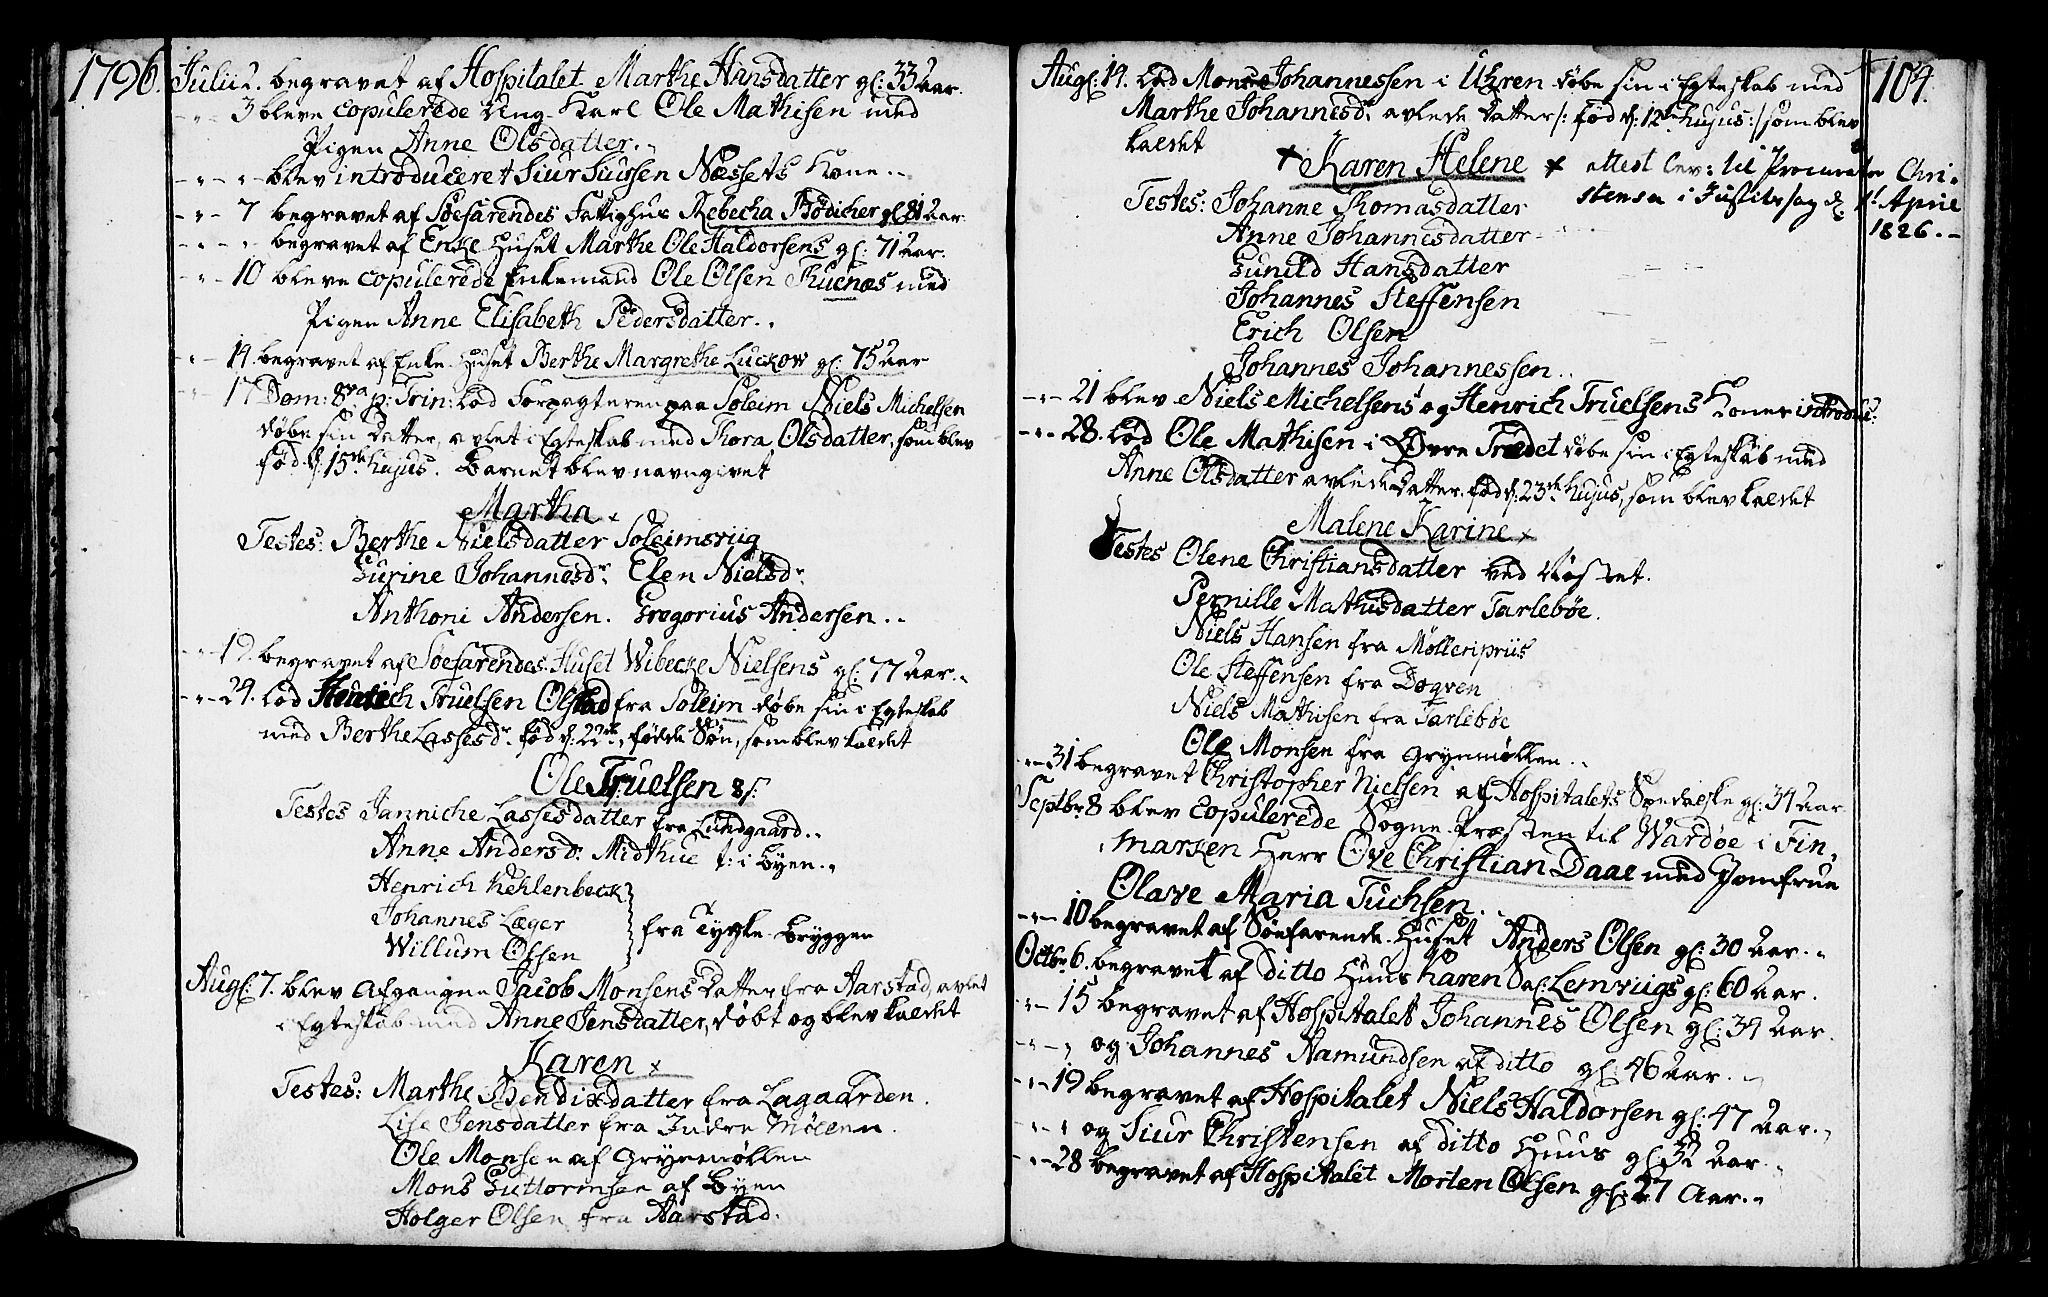 1796.
Julii 2. begravet af Hospitalet Marthe Hansdatter gl: 33 Aar.
-"- 3 bleve copulerede Ung-Karl Ole Mathisen med
Pigen Anne Olsdatter..
-"- "- blev introduceret Siur Siursen Næssets Kone..
-"- 7 begravet af Søefarendes Fattighus Rebecha Bødicher gl: 81 Aar.
-"- " begravet af Enke Huset Marthe Ole Haldorsens gl: 71 Aar.
-"- 10 bleve copulerede Enkemand Ole Olsen Thuenæs med
Pigen Anne Elisabeth Pedersdatter..
-"- 14. begravet af Enke Huset Berthe Margrethe Luckow gl: 75 Aar
-"- 17 Dom: 8va p: Trin: lod Forpagteren paa Soleim Niels Michelsen
døbe sin Datter, avlet i Egteskab med Thora Olsdatter, som blev
fød d: 15de hujus. Barnet blev navngivet
Martha x
Testes: Berthe Nielsdatter Soleimsviig
Gurine Johannesdr. Elen Nielsdr.
Anthoni Andersen. Gregorius Andersen..
-"- 19. begravet af Søefarendes Huset Wibecke Nielsens gl: 77 Aar..
-"- 24. lod Henrich Truelsen Olstad fra Soleim døbe sin i Egteskab
med Berthe Lassesdr. fød d: 22de, fødde Søn, som blev kaldet
Ole Truelsen
Testes Janniche Lassesdatter fra Lundgaard..
Anne Andersdr. Midthue t: i Byen..
Henrich Kehlenbeck
Johannes Læger
Willum Olsen
fra Tydske Bryggen
Augl. 7. blev Afgangne Jacob Monsens Datter fra Aarstad, avlet
i Egteskab med Anne Jensdatter, døbt og blev kaldet
Karen x
Testes: Marthe Bendixdatter fra Lagaarden.
Lise Jensdatter fra Indre Møllen.
Ole Monsen af Grynmøllen
Mons Guttormsen af Byen
Holger Olsen fra Aarstad.
104.
Augl: 14. Lod Mons Johannessen i Uhren døbe sin i Egteskab med
Marthe Johannesdr. avlede Datter /: fød d: 12te hujus :/ som blev
kaldet
x Karen Helene x attest lev: til Procurator Chri-
stensen i Justitssag d. 1t April
1826.-
Testes: Johanne Thomasdatter
Anne Johannesdatter
Gunild Hansdatter
Johannes Steffensen
Erich Olsen
Johannes Johannessen..
-"- 21 blev Niels Michelsens og Henrich Truelsens Koner introduc:
-"- 28. lod Ole Mathisen i Øvre Trædet døbe sin i Egteskab med
Anne Olsdatter avlede Datter, fød d: 23de hujus, som blev kaldet
Malene Karine x
Testes Olene Christiansdatter ved
Pernille Mathisdatter Tarlebøe.
Niels Hansen fra Mølleripriis
Ole Steffensen fra Dogven
Niels Mathisen fra Tarlebøe
Ole Monsen fra Grynmøllen..
-"- 31 begravet Christopher Nielsen af Hospitalets gl: 34 Aar
Septbr 8 blev copulerede Sogne-Præsten til Wardøe i Fin-
marken Herr Ove Christian Daae med Jomfrue
Olave Maria Tuchsen..
-"- 10 begravet af Søefarende-Huset Anders Olsen gl: 30 Aar..
Octbr 6. begravet af ditto Huus Karen Lemviigs gl: 60 Aar.
-"- 15 begravet af Hospitalet Johannes Olsen gl: 34 Aar.
-"- " og Johannes Aamundsen af ditto gl: 46 Aar..
-"- 19 begravet af Hospitalet Niels Haldorsen gl: 47 Aar..
-"- " og Siur Christensen af ditto Huus gl: 32 Aar.
-"- 28 begravet af Hospitalet Morten Olsen gl: 27 Aar..